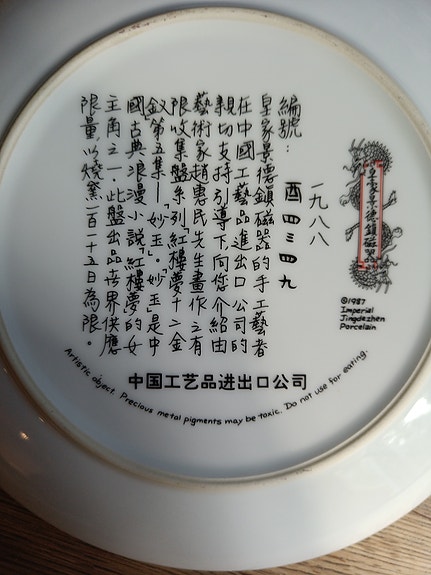 皇家景德鎮磁器
一九八八
編號：酉四三四九
皇家景德鎮磁器的手工藝者
在中國工藝品進出口公司的
親切支持引導下向您介紹由
藝術家趙惠民先生畫作之有
限收集盤系列「紅樓夢十二金
釵」第五集—「妙玉」．妙玉是中
國古典浪漫小說「紅樓夢」的女
主角之一．此盤出品世界供應
限量以燒窯一百一十五日為限。
©1987
Imperial
Jingdezhen
Porcelain
中国工艺品进出口公司
Artistic object. Precious metal pigments may be toxic. Do not use for eating.